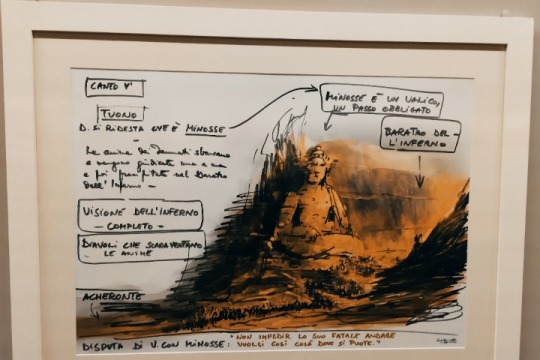 CANTO V°
TUONO
D. SI RIDESTA OVE È MINOSSE
Le anime dei dannati sbarcano
e vengono giudicate una a una
e poi precipitate nel Baratro
dell'Inferno -
VISIONE DELL'INFERNO
- COMPLETO -
DIAVOLI CHE SCARAVENTANO
LE ANIME
ACHERONTE
MINOSSE È UN VALICO,
UN PASSO OBBLIGATO
BARATRO DEL-
L'INFERNO
DISPUTA DI V. CON MINOSSE:
"NON IMPEDIR LO SUO FATALE ANDARE
VUOLSI COSÌ COLÀ DOVE SI PUOTE."